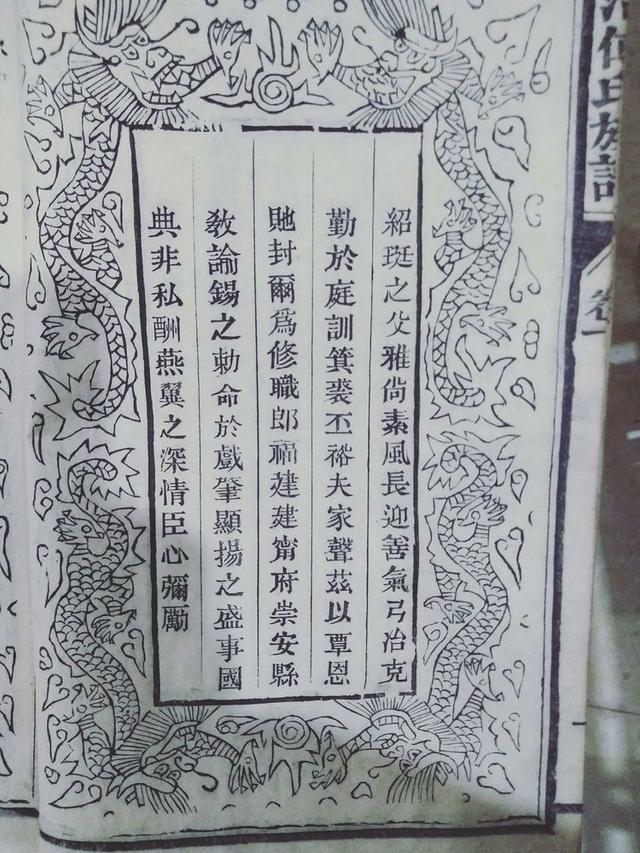 何氏族譜
卷
紹珽之父雅尙素風長迎善氣弓冶克
勤於庭訓箕裘丕裕夫家聲茲以覃恩
貤封爾爲修職郎福建建甯府崇安縣
敎諭錫之勅命於戲肇顯揚之盛事國
典非私酬燕翼之深情臣心彌勵